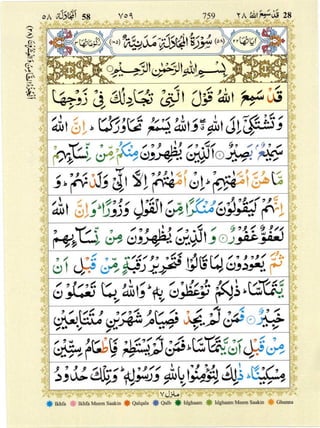 المجادلة ٥٨ 58 ٧٥٩ 759 قد سمع الله ٢٨ 28
سُوْرَةُ الْمُجَادَلَةِ مَدَنِيَّةٌ
بِسْمِ اللهِ الرَّحْمٰنِ الرَّحِيْمِ
قَدْ سَمِعَ اللهُ قَوْلَ الَّتِيْ تُجَادِلُكَ فِيْ زَوْجِهَا
وَتَشْتَكِيْٓ اِلَى اللهِ ۖ وَاللهُ يَسْمَعُ تَحَاوُرَكُمَا ۭ اِنَّ اللهَ
سَمِيْعٌۢ بَصِيْرٌ ۝ اَلَّذِيْنَ يُظٰهِرُوْنَ مِنْكُمْ مِّنْ نِّسَآئِهِمْ
مَّا هُنَّ اُمَّهٰتِهِمْ ۭ اِنْ اُمَّهٰتُهُمْ اِلَّا الّٰٓـِٔيْ وَلَدْنَهُمْ ۭ وَ
اِنَّهُمْ لَيَقُوْلُوْنَ مُنْكَرًا مِّنَ الْقَوْلِ وَزُوْرًا ۭ وَ اِنَّ اللهَ
لَعَفُوٌّ غَفُوْرٌ ۝ وَ الَّذِيْنَ يُظٰهِرُوْنَ مِنْ نِّسَآئِهِمْ
ثُمَّ يَعُوْدُوْنَ لِمَا قَالُوْا فَتَحْرِيْرُ رَقَبَةٍ مِّنْ قَبْلِ اَنْ
يَّتَمَآسَّا ۭ ذٰلِكُمْ تُوْعَظُوْنَ بِهٖ ۭ وَاللهُ بِمَا تَعْمَلُوْنَ
خَبِيْرٌ ۝ فَمَنْ لَّمْ يَجِدْ فَصِيَامُ شَهْرَيْنِ مُتَتَابِعَيْنِ
مِنْ قَبْلِ اَنْ يَّتَمَآسَّا ۚ فَمَنْ لَّمْ يَسْتَطِعْ فَاِطْعَامُ سِتِّيْنَ
مِسْكِيْنًا ۭ ذٰلِكَ لِتُؤْمِنُوْا بِاللهِ وَرَسُوْلِهٖ ۭ وَتِلْكَ حُدُوْدُ
منزل ٧
Ikhfa Ikhfa Meem Saakin Qalqala Qalb Idghaam Idghaam Meem Saakin Ghunna